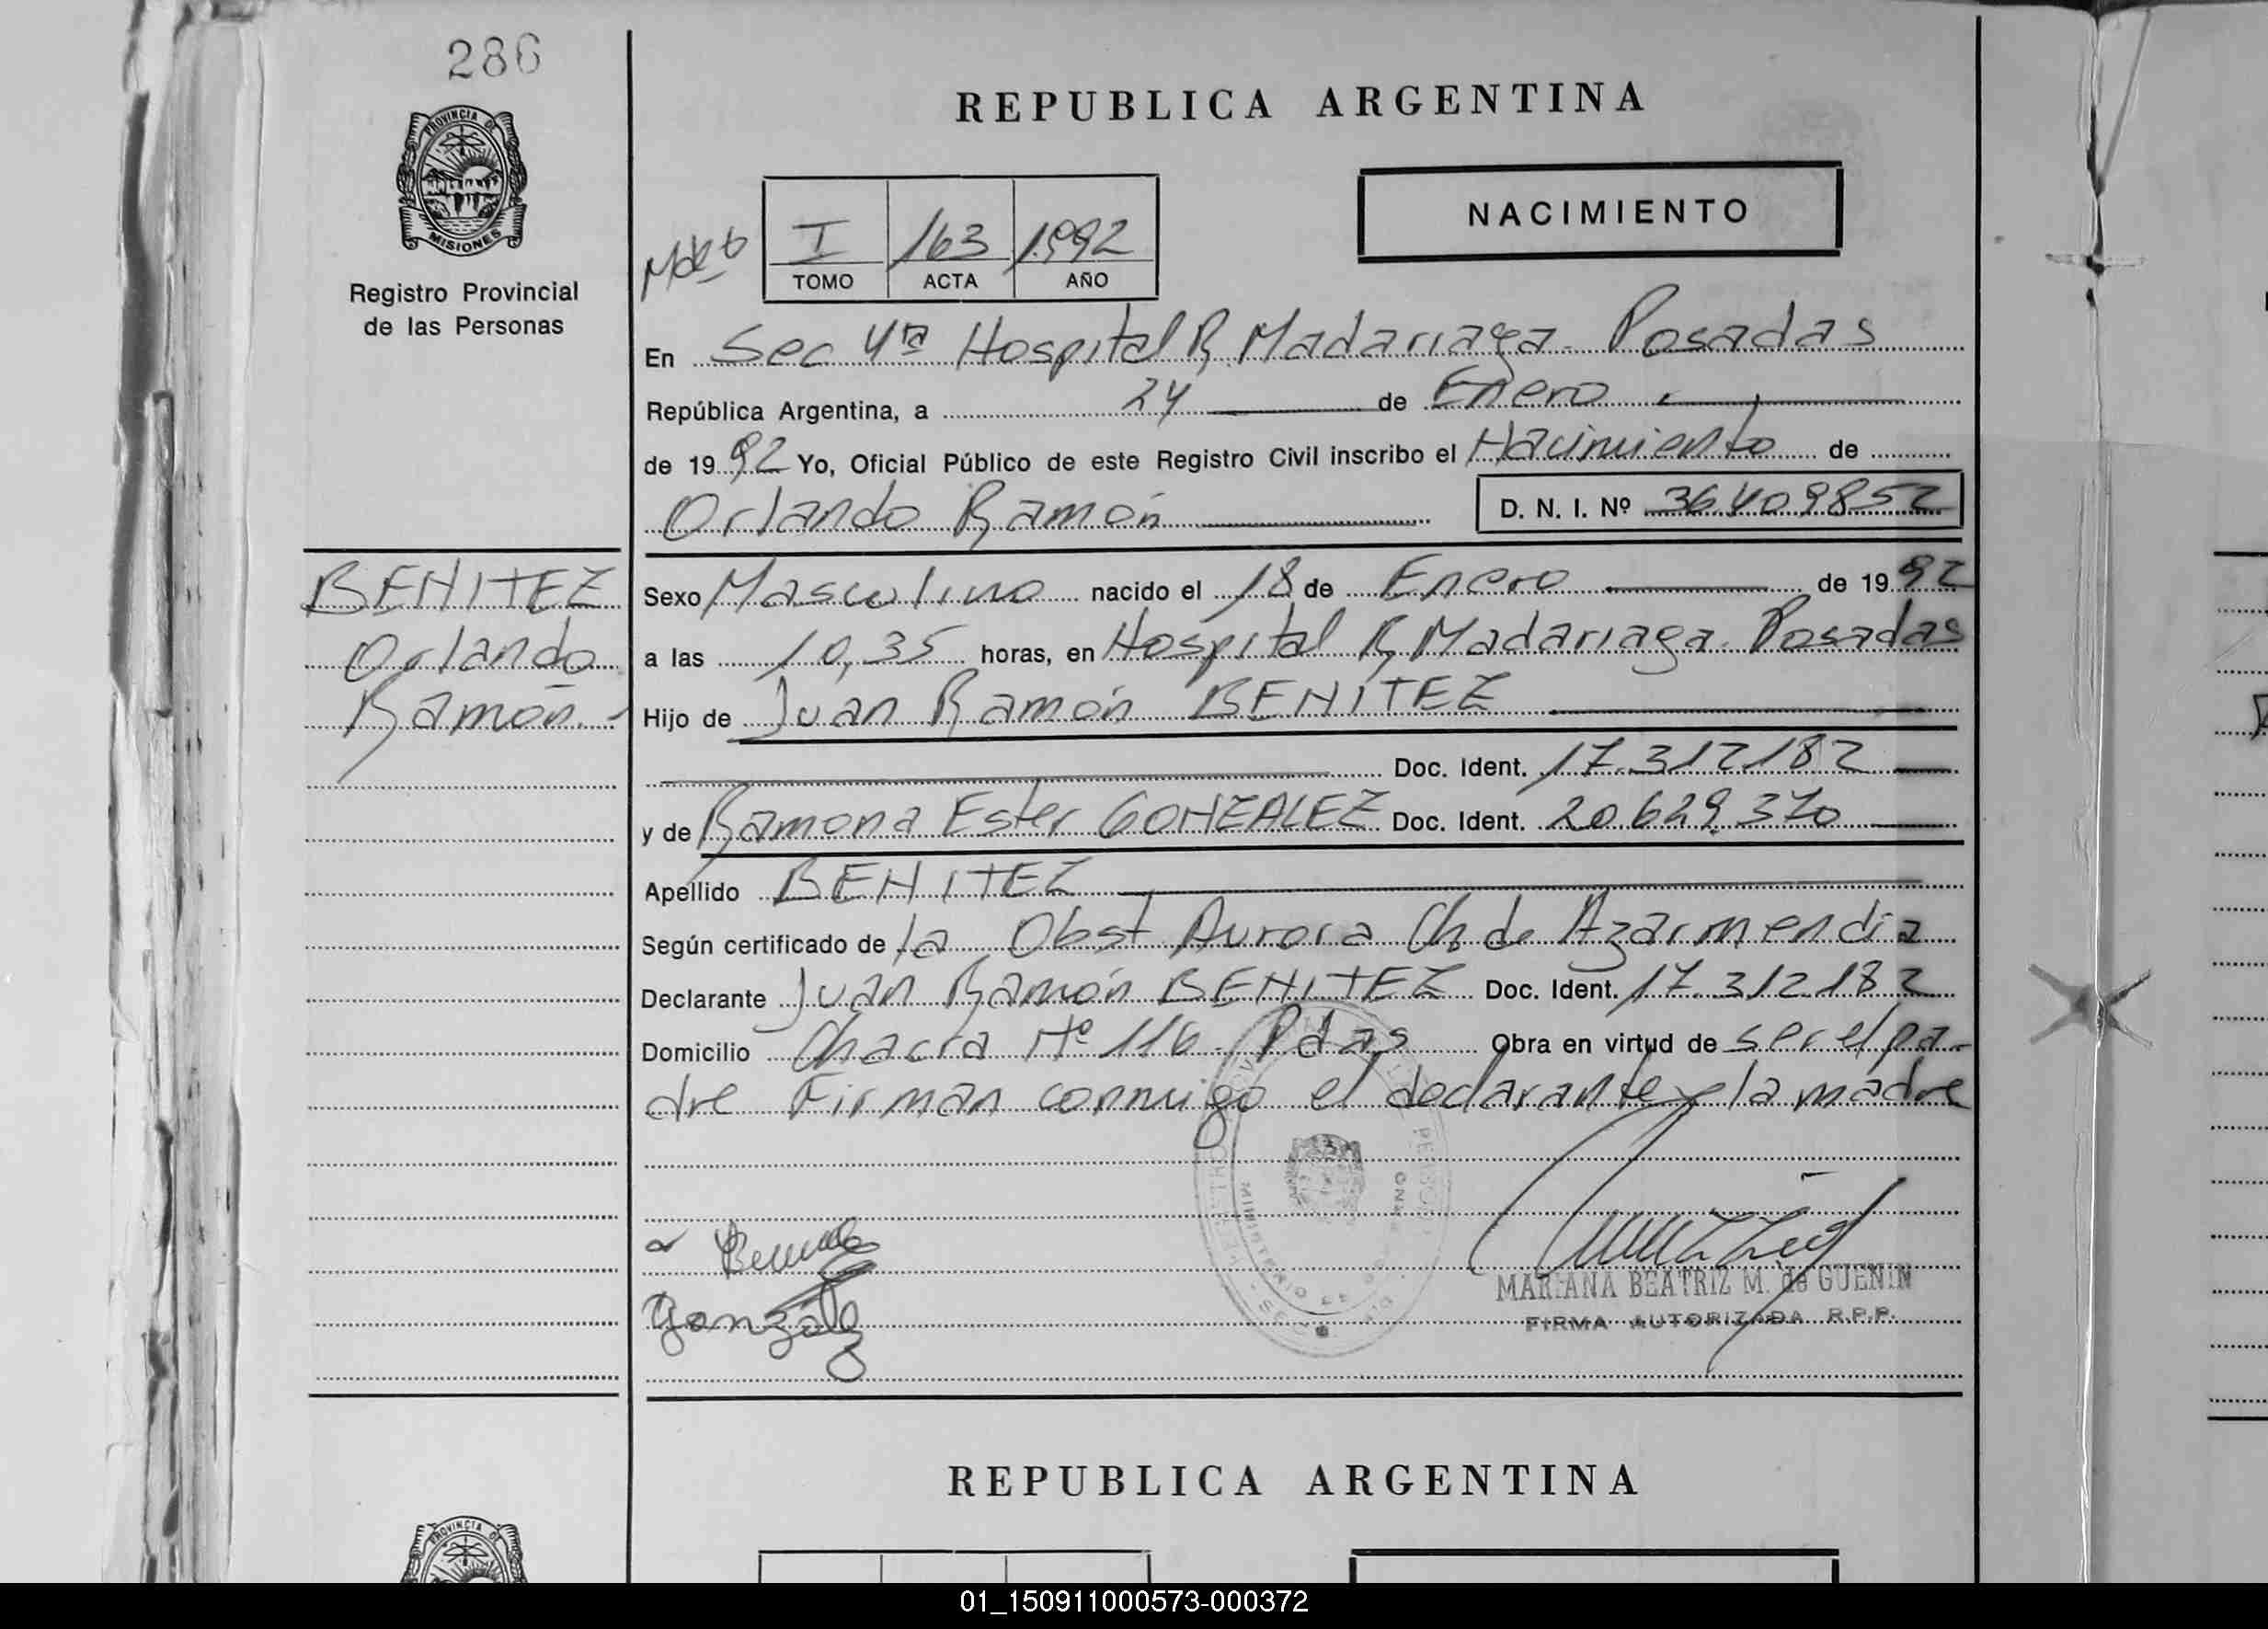 286
PROVINCIA DE
MISIONES
Registro Provincial
de las Personas
REPUBLICA ARGENTINA
NACIMIENTO
I 163 1992
TOMO ACTA AÑO
En Sec 4ta Hospital R. Madariaga - Posadas
República Argentina, a 24 de Enero
de 1992 Yo, Oficial Público de este Registro Civil inscribo el Nacimiento de
Orlando Ramón D. N. I. Nº 36409852
BENITEZ
Orlando
Ramón.-
Sexo Masculino nacido el 18 de Enero de 1992
a las 10,35 horas, en Hospital R. Madariaga. Posadas
Hijo de Juan Ramón BENITEZ
Doc. Ident. 17.312182
y de Ramona Ester GONZALEZ Doc. Ident. 20.629.370
Apellido BENITEZ
Según certificado de la Obst Aurora Ch de Azarmendia
Declarante Juan Ramón BENITEZ Doc. Ident. 17.312.182
Domicilio Chacra Nº 116 - Pdas Obra en virtud de ser el pa-
dre Firman conmigo el declarante y la madre
MINISTERIO DE
González
MARIANA BEATRIZ M. de GUENIN
FIRMA AUTORIZADA R.P.P.
REPUBLICA ARGENTINA
PROVINCIA DE
01_150911000573-000372